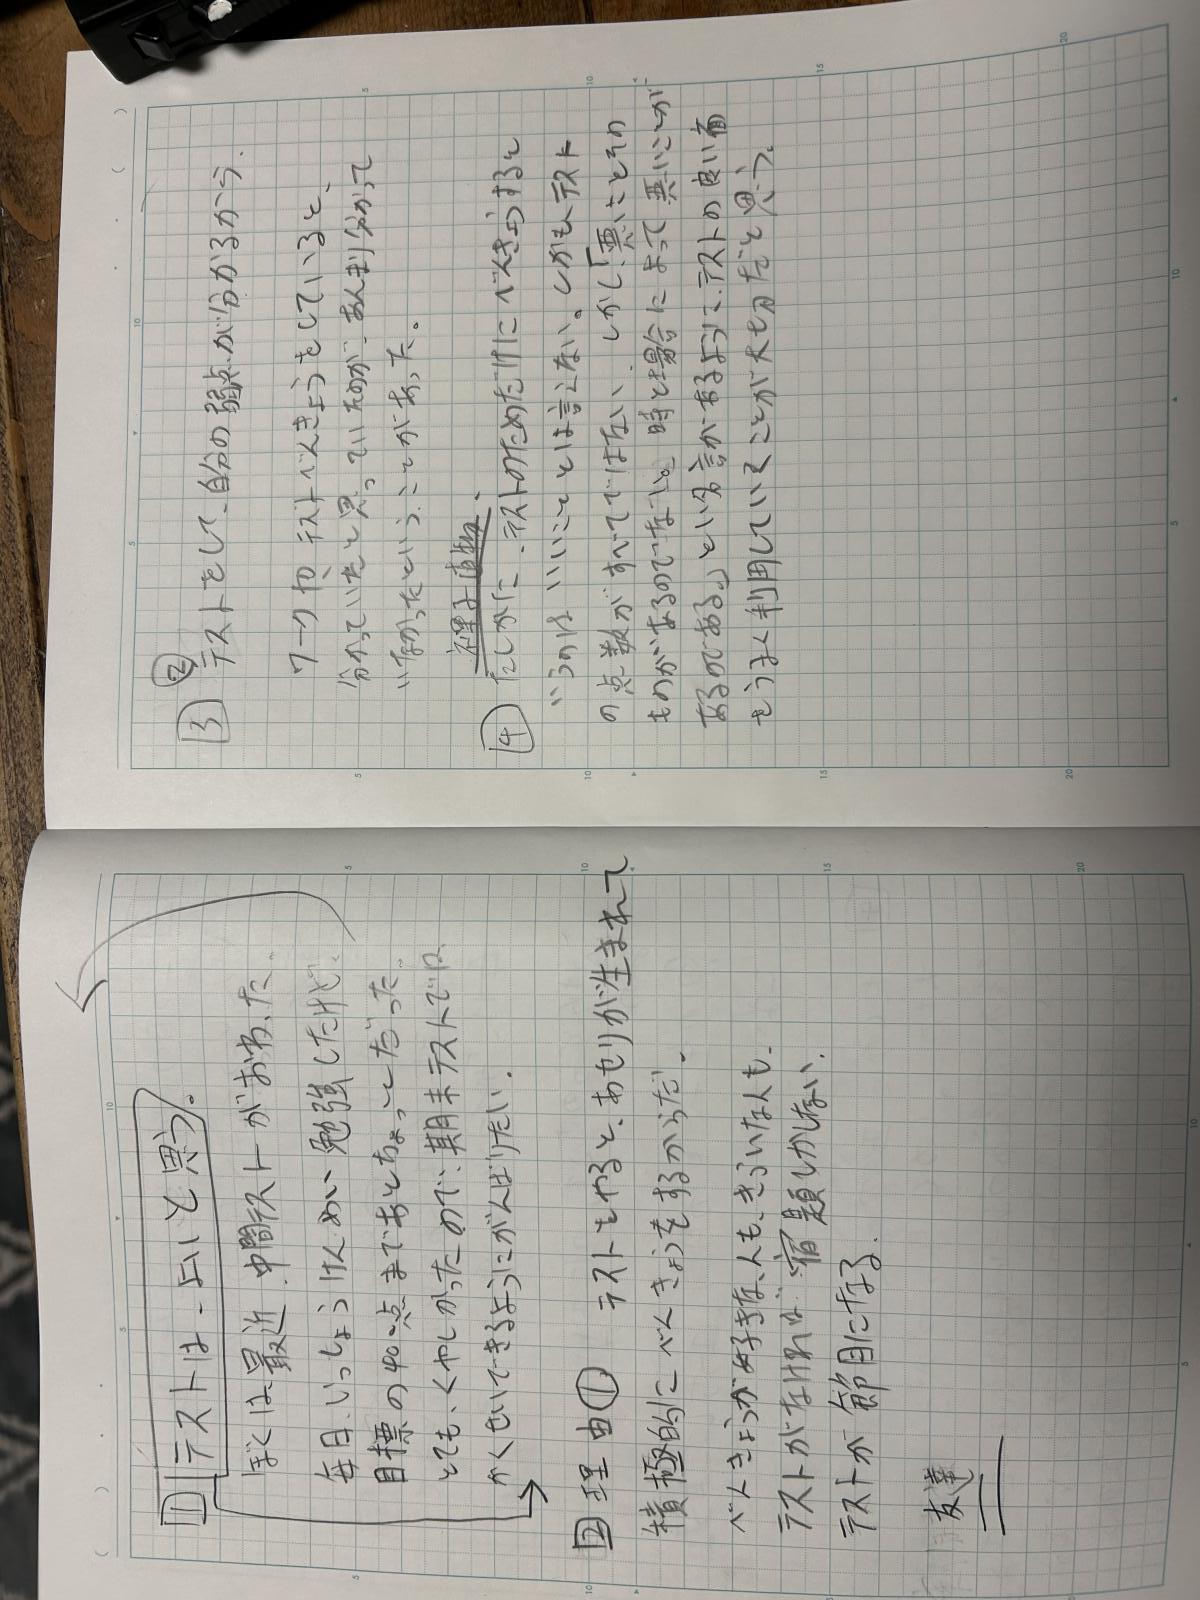 1 テストは、よいと思う。
ぼくは最近、中間テストがおわった。
毎日、いっしょうけんめい勉強したけど、
目標の400点まであとちょっとだった。
とても、くやしかったので、期末テストでは
かくせいできるようにがんばりたい。
2 理由① テストをやると、あせりが生まれて
積極的にべんきょうをするからだ。
べんきょうが好きな人も、きらいな人も、
テストがなければ宿題しかしない。
テストが節目になる。
友達
3 ② テストをして、自分の弱点が分かるから。
ワークやテストべんきょうをしていると、
分かっていたと思っていたのが、あんまり分かって
いなかったということがあった。
4 たしかに、テストのためだけにべんきょうすると
いうのはいいことは言えない。しかもテスト
の点数がすべてではない。しかし「悪いことその
ものがあるのでなし。時と場合によって悪いことが
あるのである。」という名言があるように、テストの良い面
をうまく利用していくことが大切だと思う。